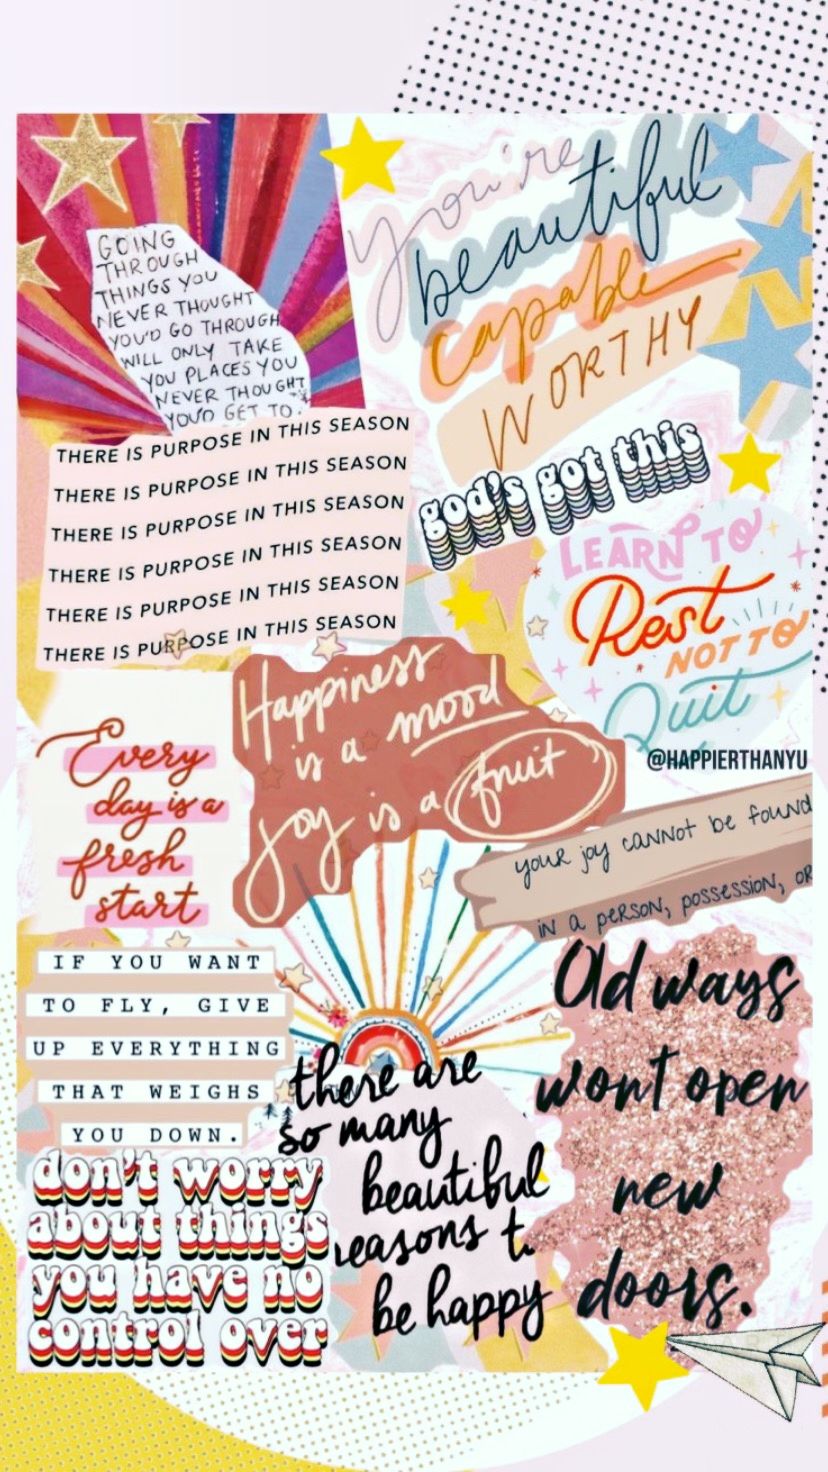 GOING
THROUGH
THINGS YOU
NEVER THOUGHT
YOU'D GO THROUGH
WILL ONLY TAKE
YOU PLACES YOU
NEVER THOUGHT
YOU'D GET TO.
you're
beautiful
capable
WORTHY
THERE IS PURPOSE IN THIS SEASON
THERE IS PURPOSE IN THIS SEASON
THERE IS PURPOSE IN THIS SEASON
THERE IS PURPOSE IN THIS SEASON
THERE IS PURPOSE IN THIS SEASON
THERE IS PURPOSE IN THIS SEASON
god's got this
LEARN TO
Rest
NOT TO
Quit
@HAPPIERTHANYU
Happiness
is a mood
joy is a fruit
Every
day is a
fresh
start
your joy cannot be found
in a person, possession, or
IF YOU WANT
TO FLY, GIVE
UP EVERYTHING
THAT WEIGHS
YOU DOWN.
there are
so many
beautiful
reasons t
be happy
Old ways
won't open
new
doors.
don't worry
about things
you have no
control over